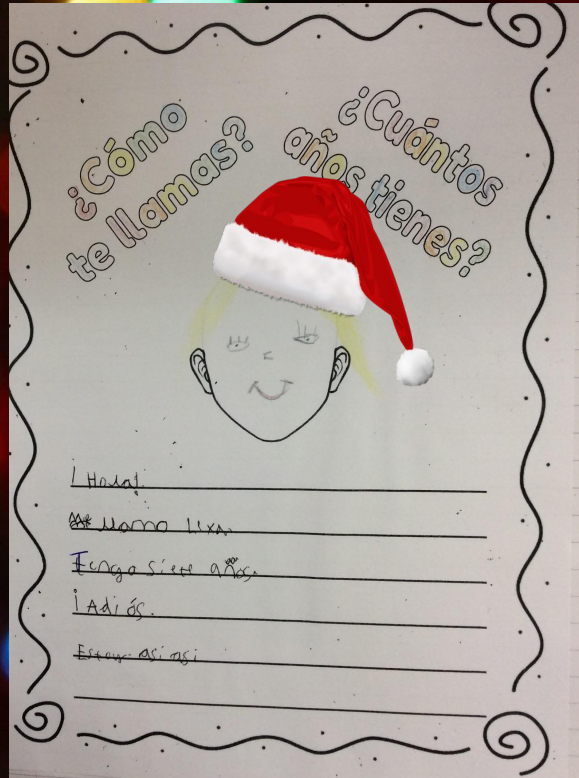 ¿Cómo
te llamas?
¿Cuántos
años tienes?
¡Hola!
Me llamo Lixa.
Tengo siete años.
¡Adiós.
Estoy asi asi